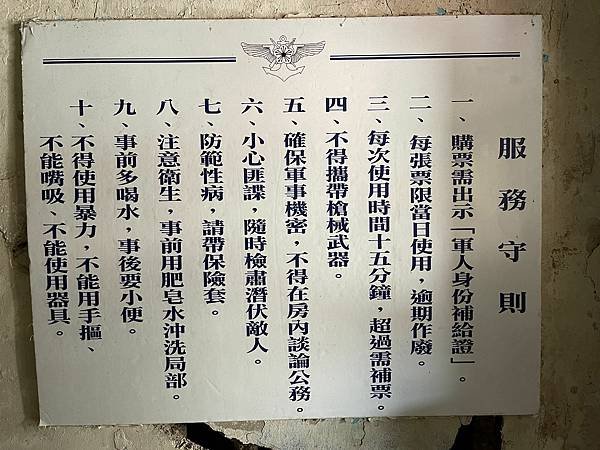 服務守則
一、購票需出示「軍人身份補給證」。
二、每張票限當日使用，逾期作廢。
三、每次使用時間十五分鐘，超過需補票。
四、不得攜帶槍械武器。
五、確保軍事機密，不得在房內談論公務。
六、小心匪諜，隨時檢肅潛伏敵人。
七、防範性病，請帶保險套。
八、注意衛生，事前用肥皂水沖洗局部。
九、事前多喝水，事後要小便。
十、不得使用暴力，不能用手摳、
不能嘴吸、不能使用器具。